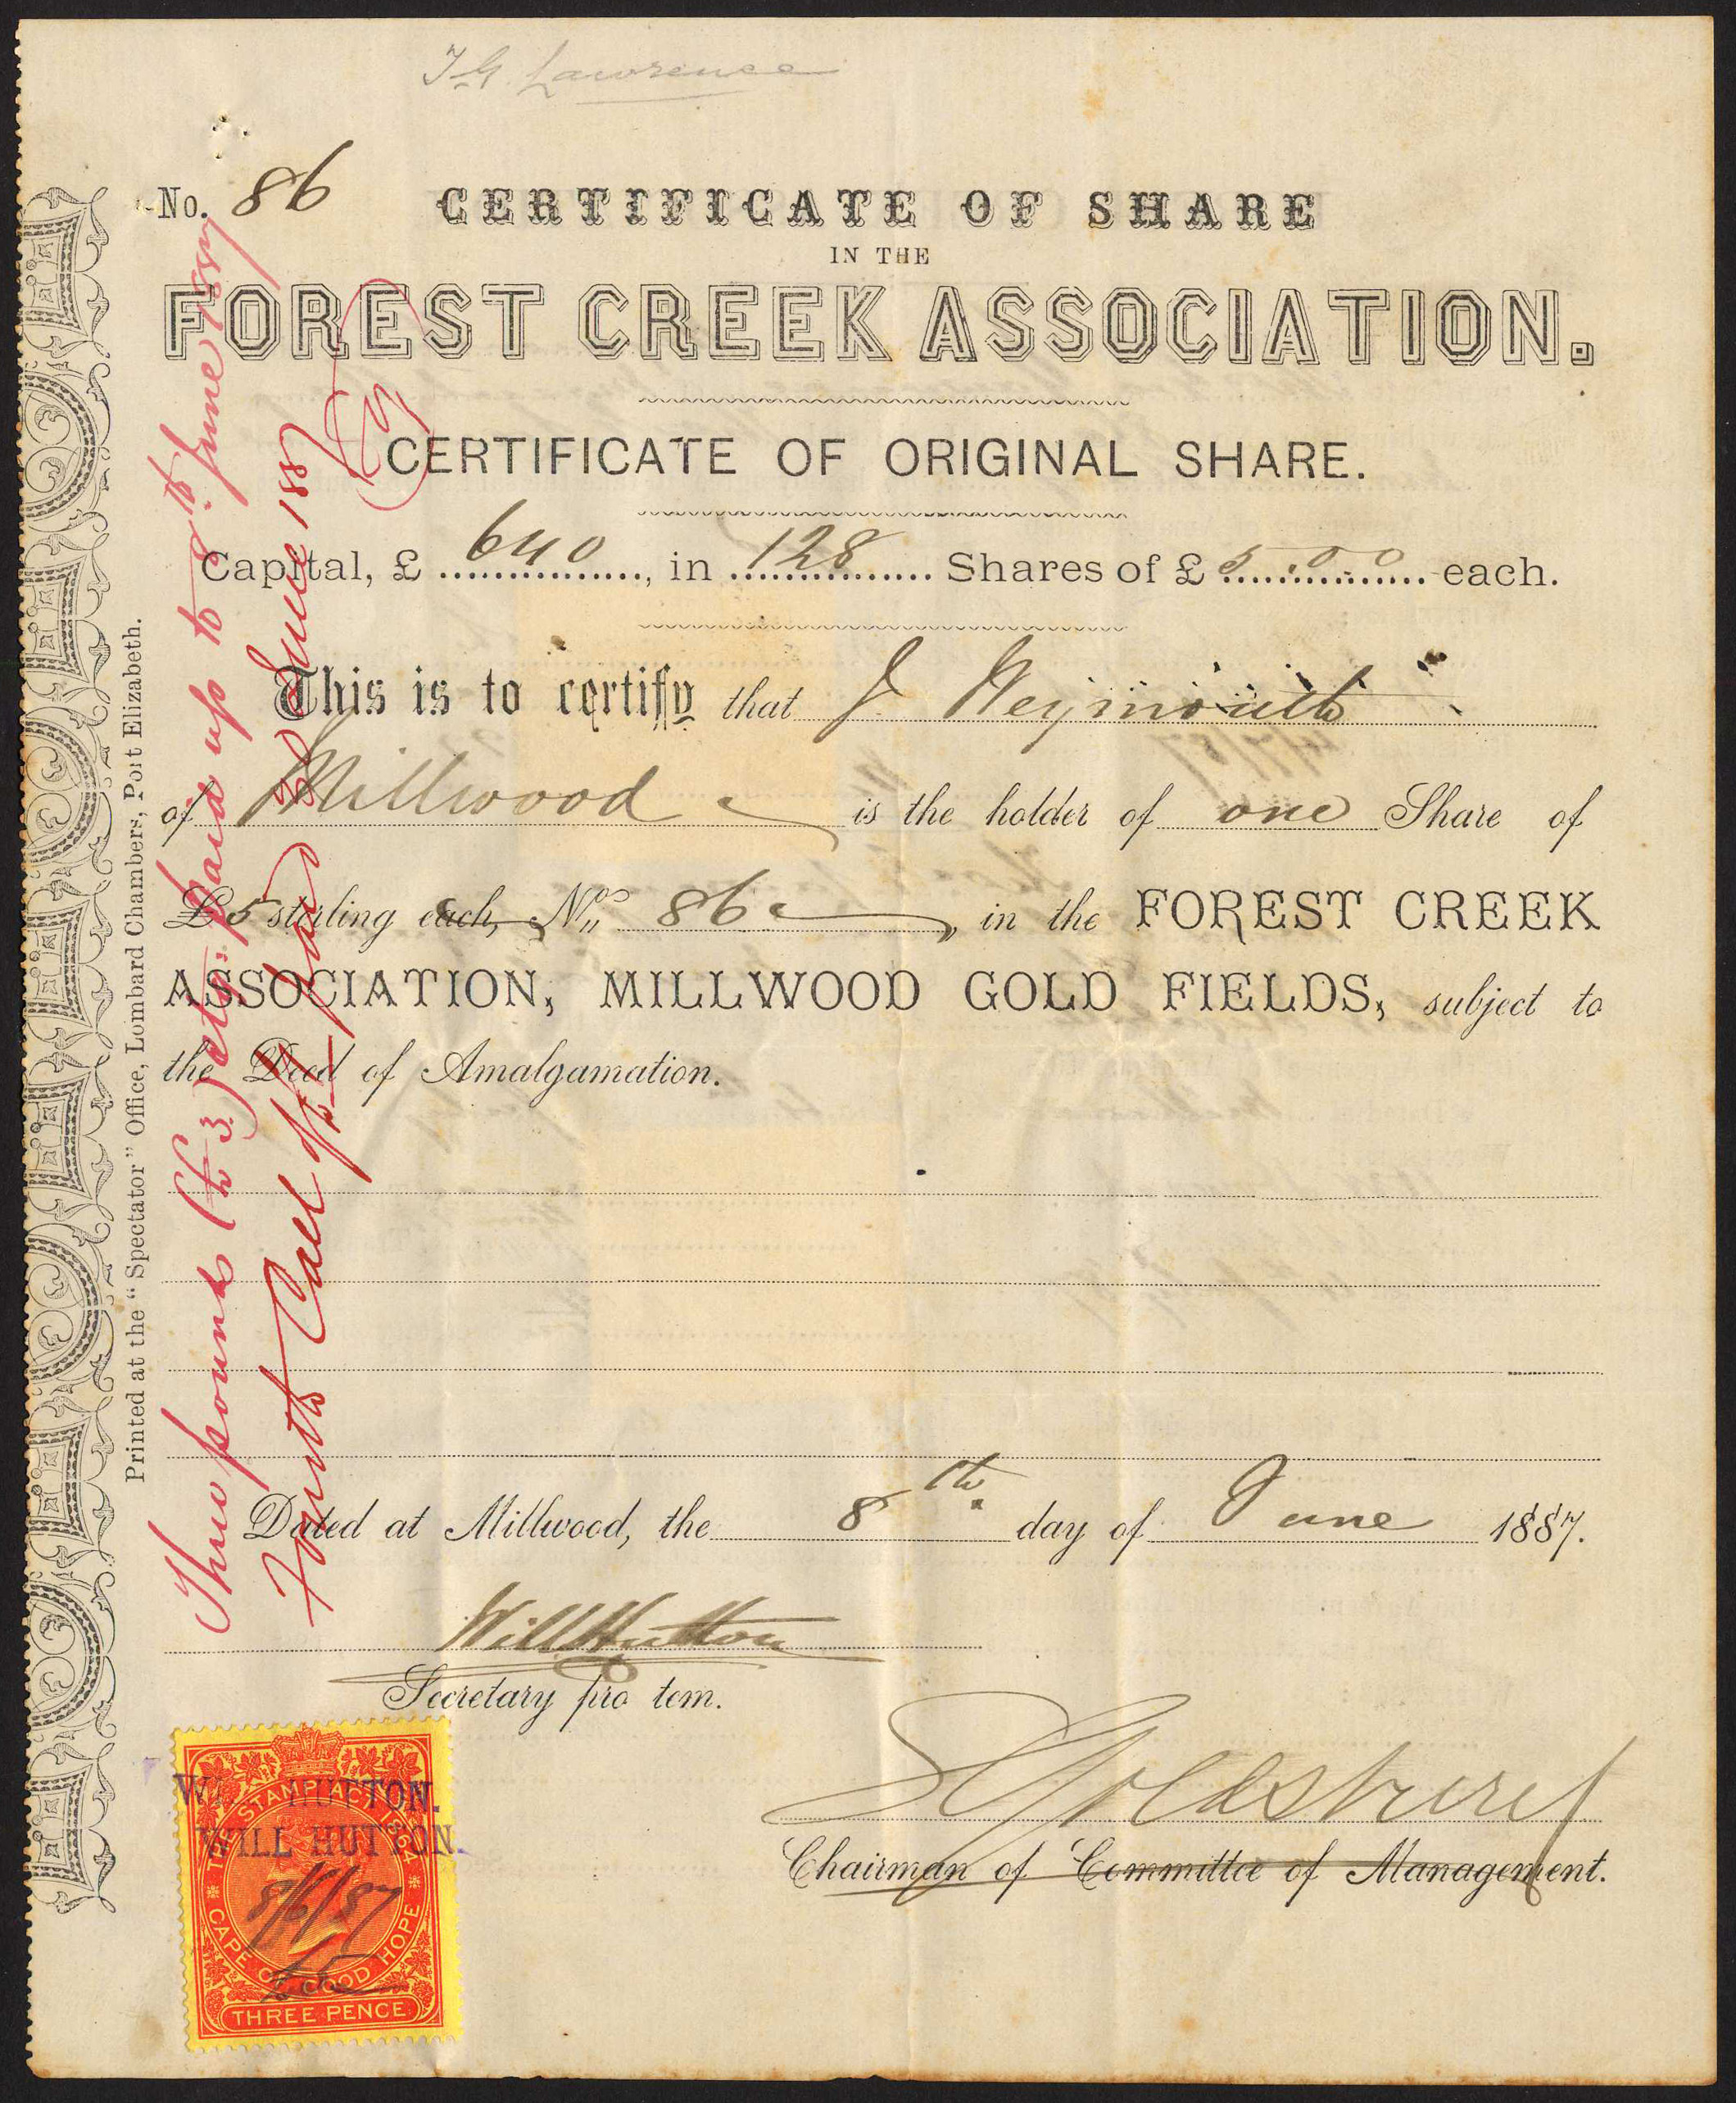 T.G. Lawrence
No. 86
CERTIFICATE OF SHARE
IN THE
FOREST CREEK ASSOCIATION.
CERTIFICATE OF ORIGINAL SHARE.
Capital, £ 640, in 128 Shares of £ 5.00 each.
This is to certify that J Weymouth
of Millwood is the holder of one Share of
£5 sterling each, No. 86, in the FOREST CREEK
ASSOCIATION, MILLWOOD GOLD FIELDS, subject to
the Deed of Amalgamation.
Dated at Millwood, the 8th day of June 1887.
Will Hutton
Secretary pro tem.
Chairman of Committee of Management.
WILL HUTTON.
WILL HUTTON.
THE STAMP ACT 1864
8/6/87
CAPE OF GOOD HOPE
THREE PENCE
Printed at the "Spectator" Office, Lombard Chambers, Port Elizabeth.
Three pounds (£3) stg: paid up to 8th June 1887
Fourth Call of £1 paid June 188